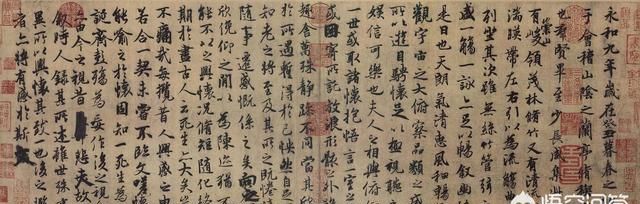 永和九年歲在癸丑暮春之
于會稽山陰之蘭亭脩稧
也群賢畢至少長咸集此
有崇山峻領茂林脩竹又有清
湍暎帶左右引以為流觴曲
列坐其次雖無絲竹管弦
盛一觴一詠亦足以暢敘幽
是日也天朗氣清惠風和暢
觀宇宙之大俯察品類之
所以遊目騁懷足以極視聽
娛信可樂也夫人之相與俯仰
一世或取諸懷抱悟言一室之
或因寄所託放浪形骸之外
趣舍萬殊靜躁不同當其
於所遇蹔得於己怏然自足
知老之將至及其所之既惓
隨事遷感慨係之矣向之
欣俛仰之閒以為陳迹猶
能不以之興懷況脩短隨化
期於盡古人云死生亦大矣
不痛哉每攬昔人興感之
若合一契未嘗不臨文嗟
能喻之於懷固知一死生為
誕齊彭殤為妄作後之視
由今之視昔悲夫故
敘時人錄其所述雖世殊
異所以興懷其致一也後之攬
者亦將有感於斯
悟空问答